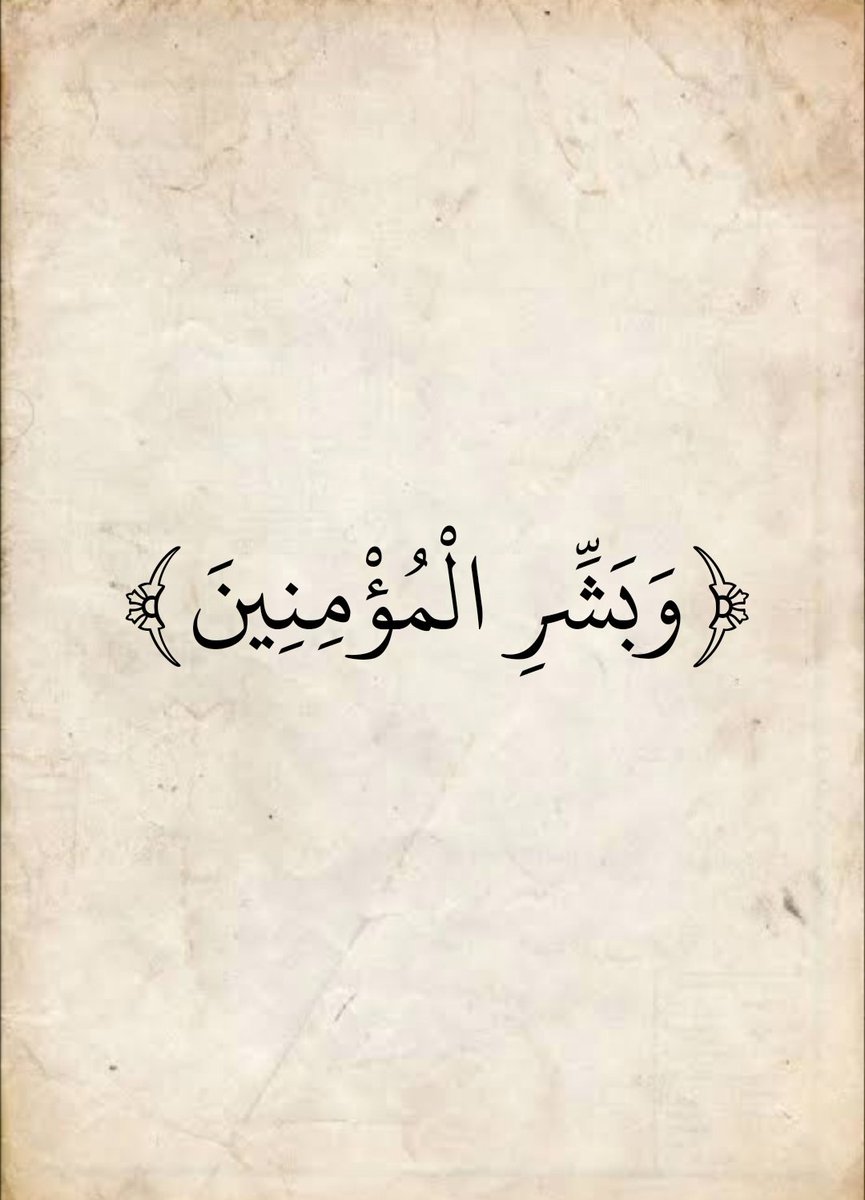 ﴿وَبَشِّرِ الْمُؤْمِنِينَ﴾